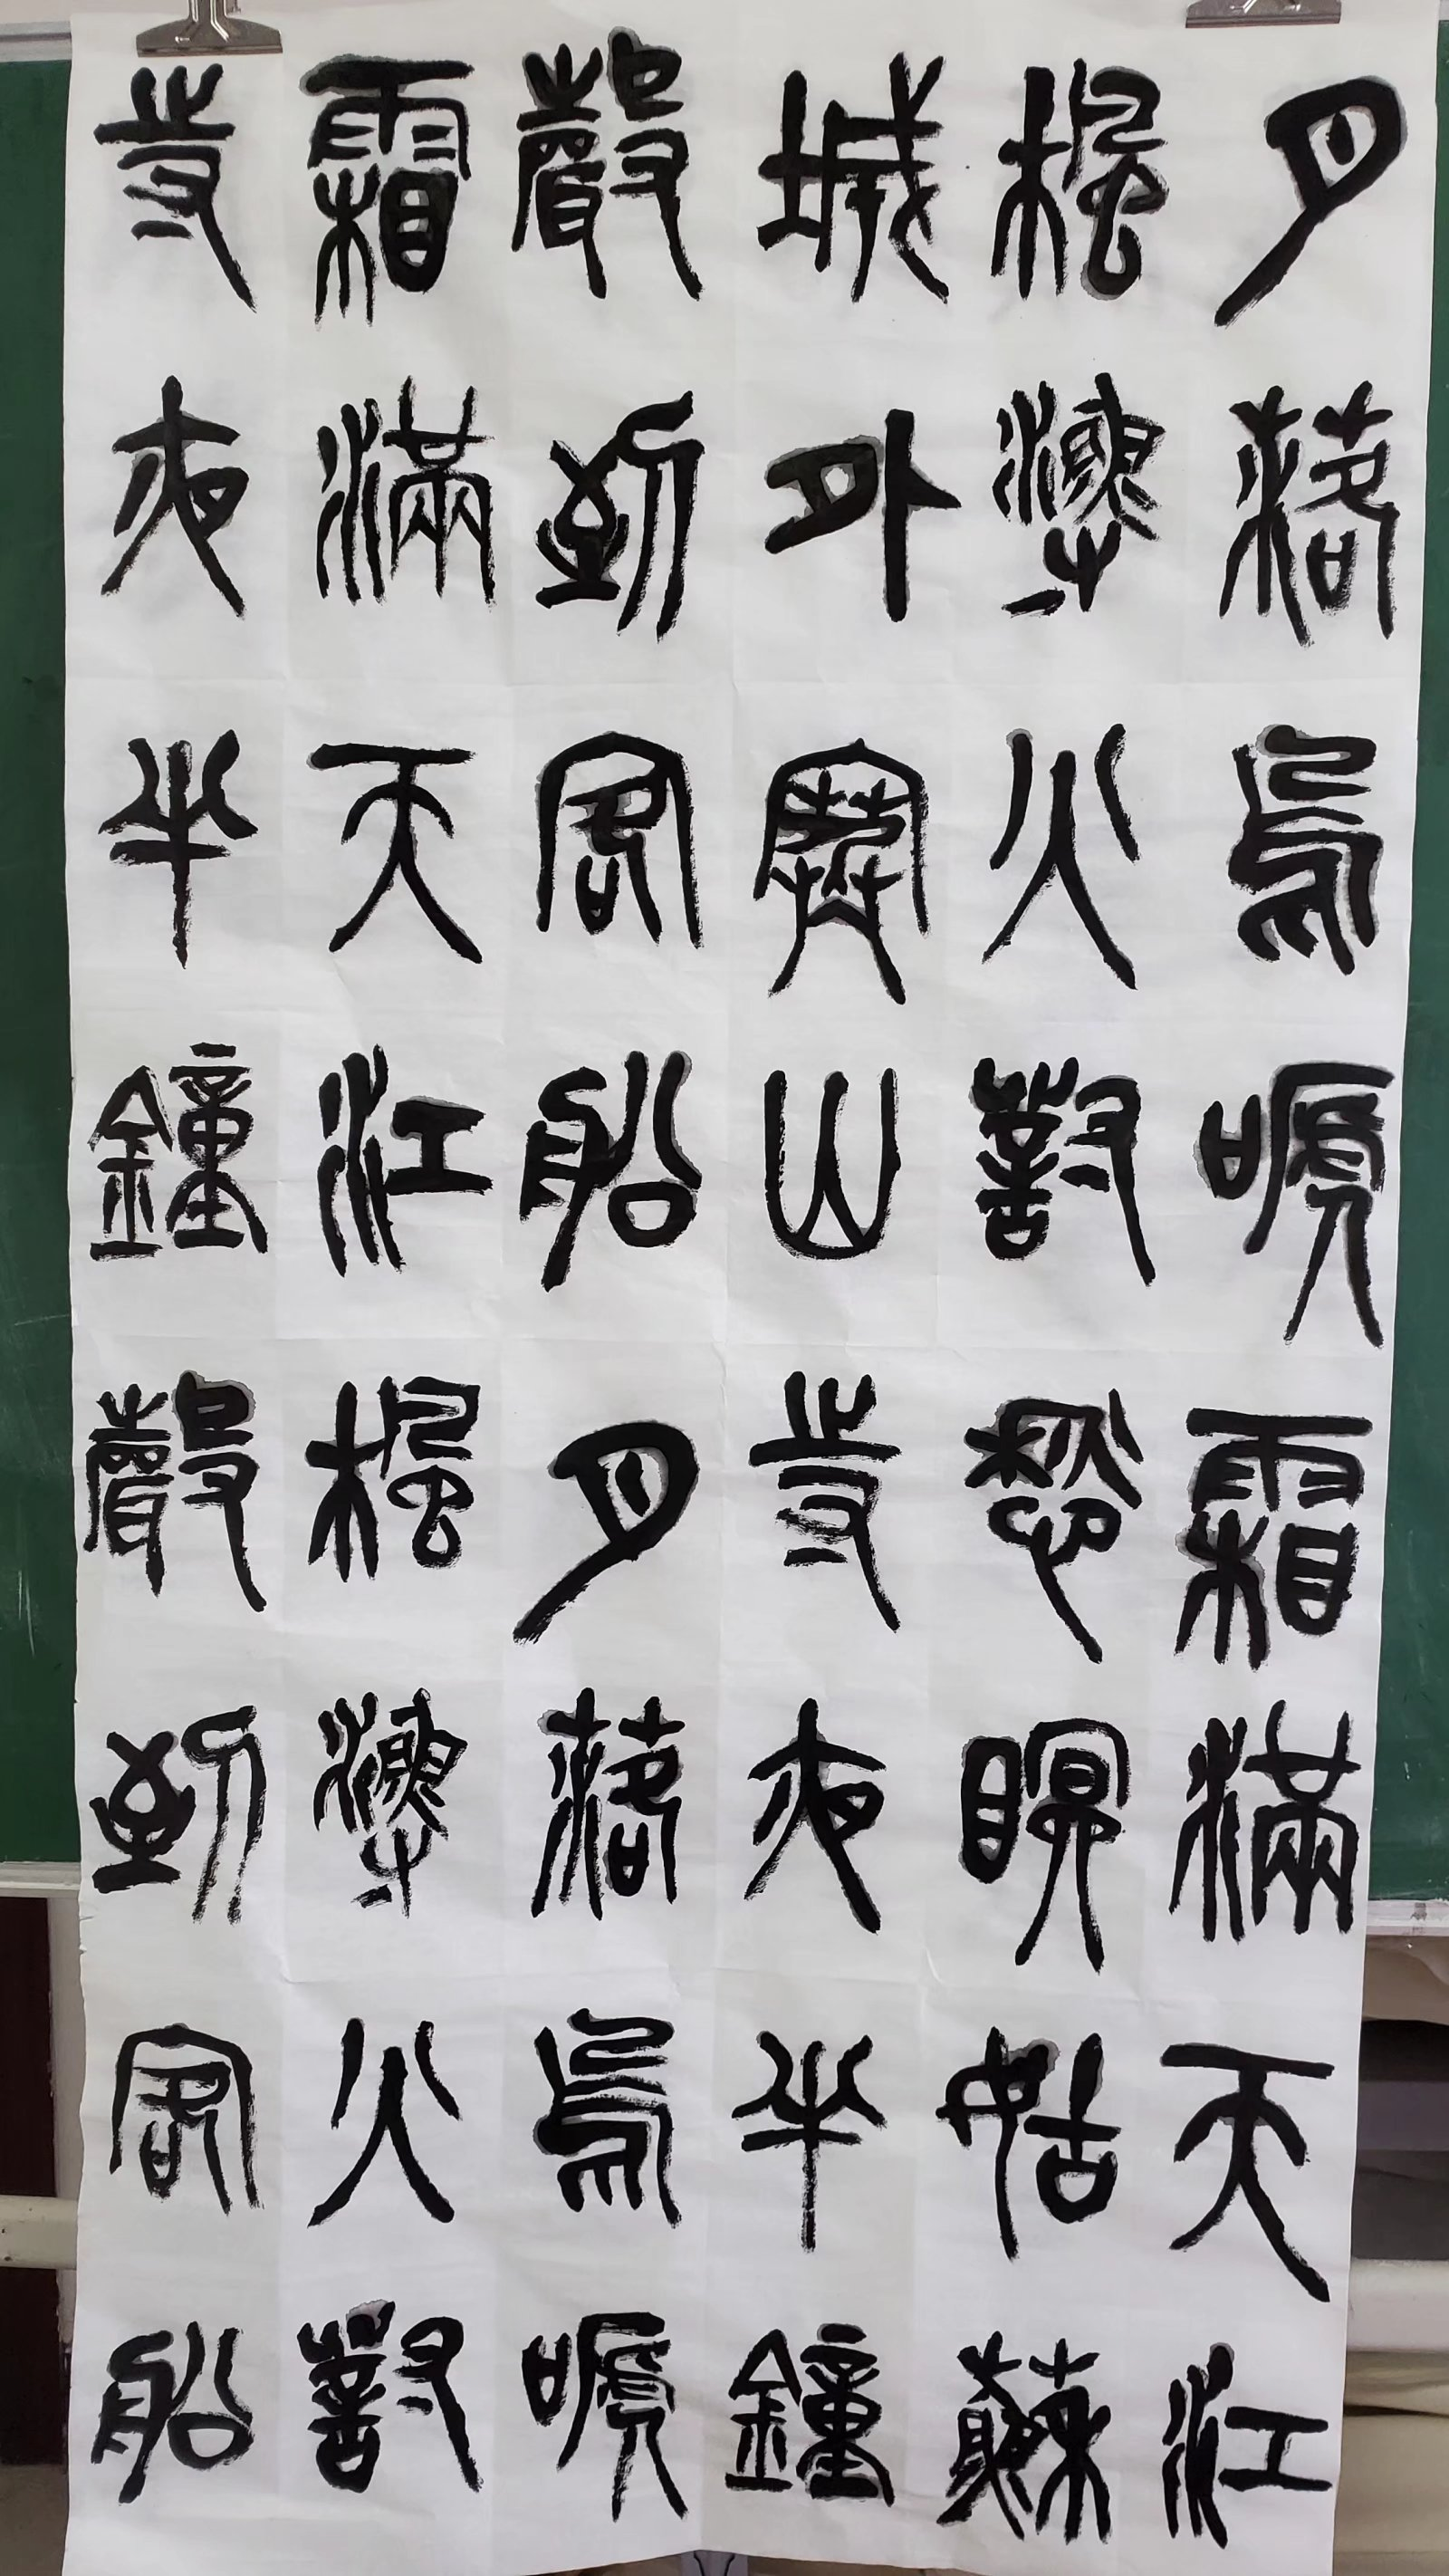 月落烏嗁霜滿天江
楓漁火對愁眠姑蘇
城外寒山寺夜半鐘
聲到客船月落烏嗁
霜滿天江楓漁火對
寺夜半鐘聲到客船